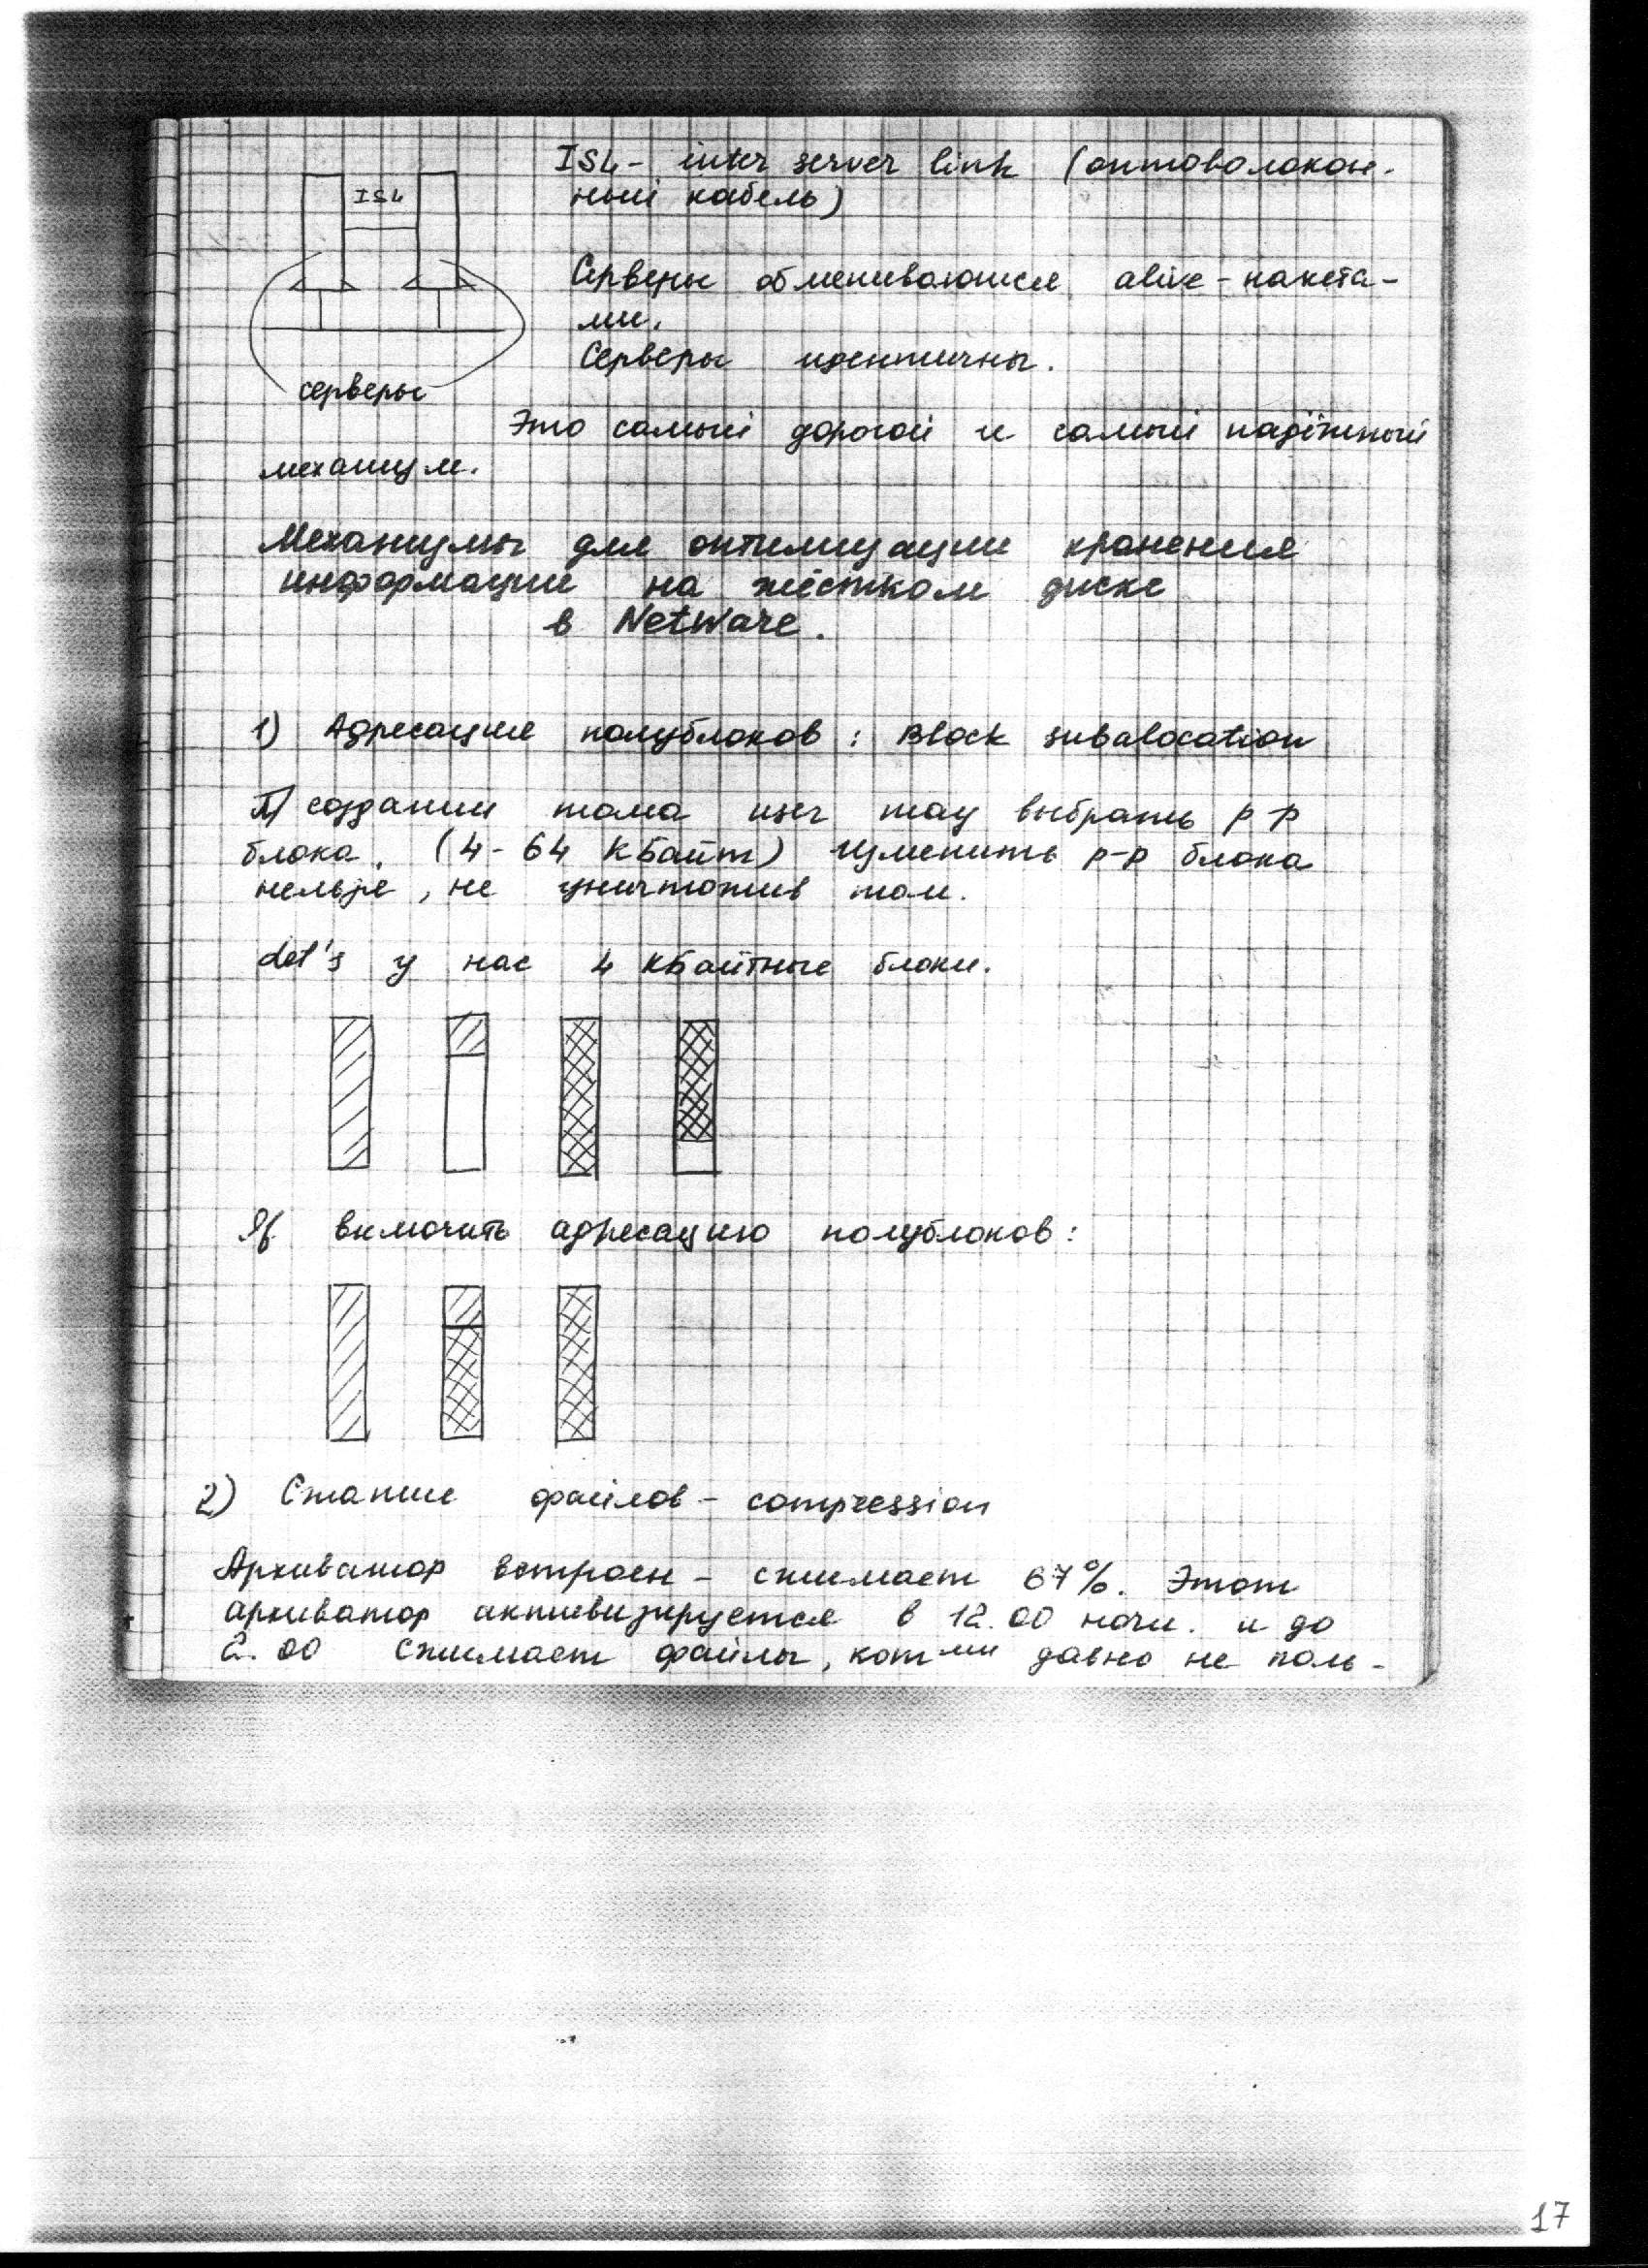 ISL
серверы
ISL - inter server link (оптоволокон.
ный кабель)
Серверы обмениваются alive-пакета-
ми.
Серверы идентичны.
Это самый дорогой и самый надёжный
механизм.
Механизмы для оптимизации хранения
информации на жёстком диске
в NetWare.
1) Адресация полублоков : Block subalocation
П/ создании тома user may выбрать р-р
блока. (4-64 КБайт) Изменить р-р блока
нельзя, не уничтожив том.
Let's у нас 4 КБайтные блоки.
If включить адресацию полублоков:
2) Сжатие файлов - compression
Архиватор встроен - сжимает 67%. Этот
архиватор активизируется в 12.00 ночи. и до
2.00 сжимает файлы, котми давно не поль-
17